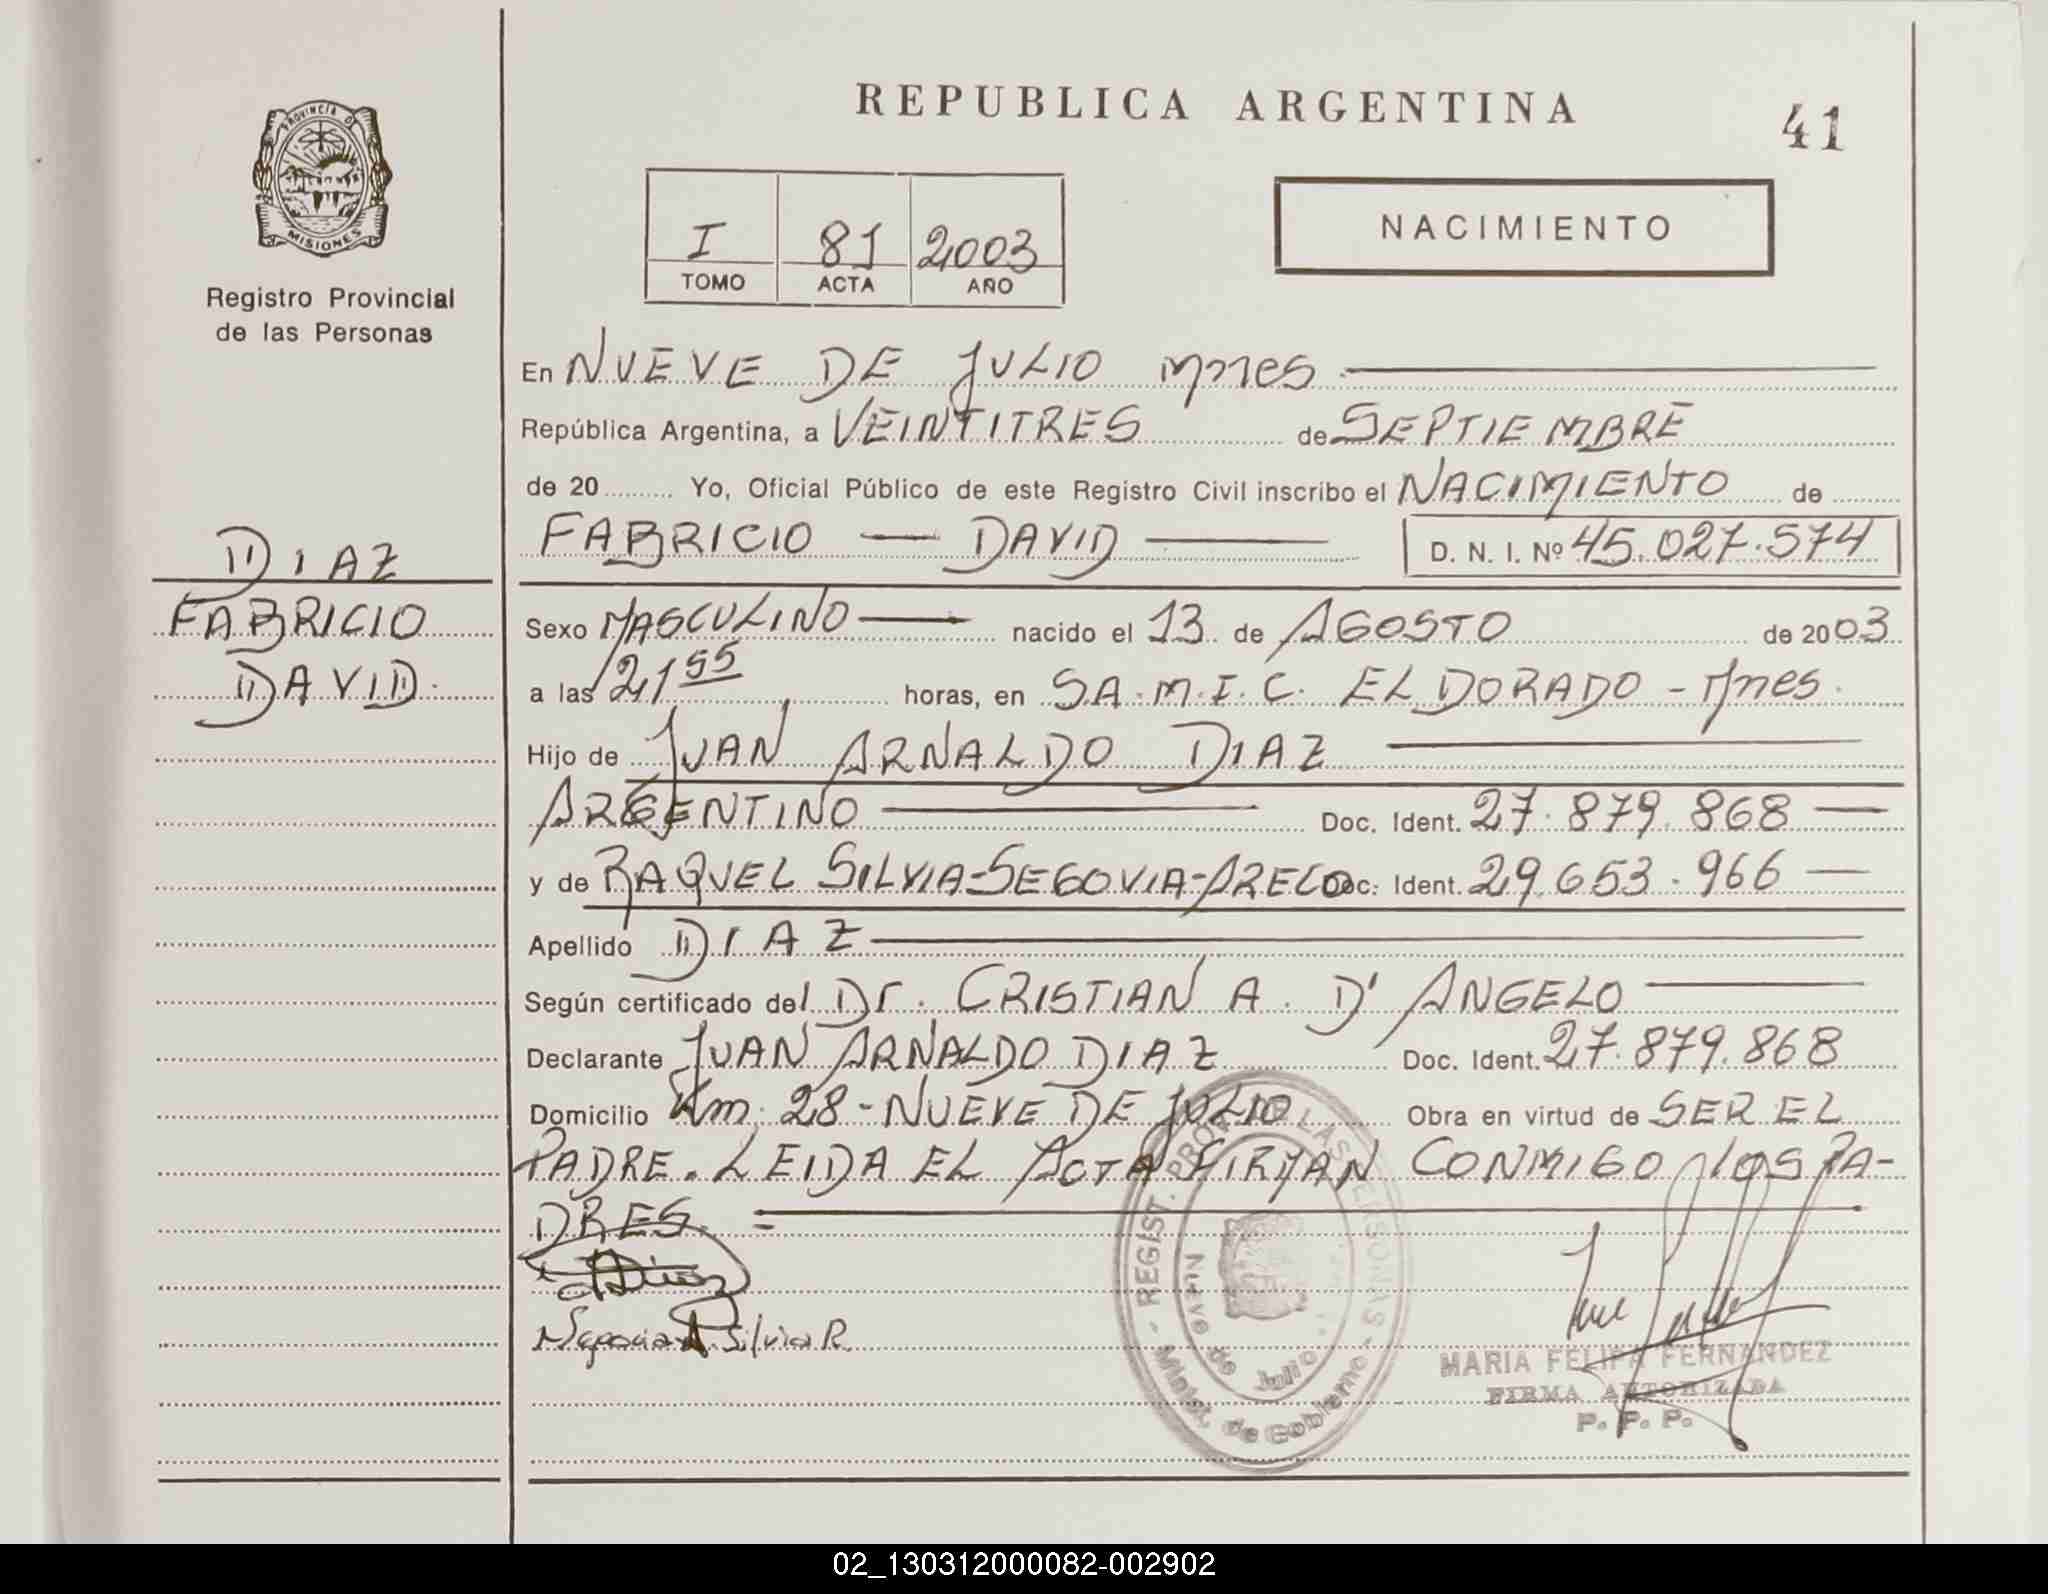 PROVINCIA DE
MISIONES
Registro Provincial
de las Personas
DIAZ
FABRICIO
DAVID.
REPUBLICA ARGENTINA
41
I 81 2003
TOMO ACTA AÑO
NACIMIENTO
En NUEVE DE JULIO Mnes
República Argentina, a VEINTITRES de SEPTIEMBRE
de 20 Yo, Oficial Público de este Registro Civil inscribo el NACIMIENTO de
FABRICIO — DAVID — D. N. I. Nº 45.027.574
Sexo MASCULINO — nacido el 13 de AGOSTO de 2003
a las 21 55 horas, en S.A.M.I.C. ELDORADO - Mnes.
Hijo de JUAN ARNALDO DIAZ —
ARGENTINO — Doc. Ident. 27.879.868 —
y de RAQUEL SILVIA-SEGOVIA-ARECO Doc. Ident. 29.653.966 —
Apellido DIAZ —
Según certificado del Dr. CRISTIAN A. D'ANGELO —
Declarante JUAN ARNALDO DIAZ Doc. Ident. 27.879.868
Domicilio Km. 28 - NUEVE DE JULIO Obra en virtud de SER EL
PADRE. LEIDA EL ACTA FIRMAN CONMIGO LOS PA-
DRES. =
Diaz
Segovia A. Silvia R.
REGIST. PROV. DE LAS PERSONAS - Minist. de Gobierno -
Nueve de Julio
MARIA FELIPA FERNANDEZ
FIRMA AUTORIZADA
P. P. P.
02_130312000082-002902